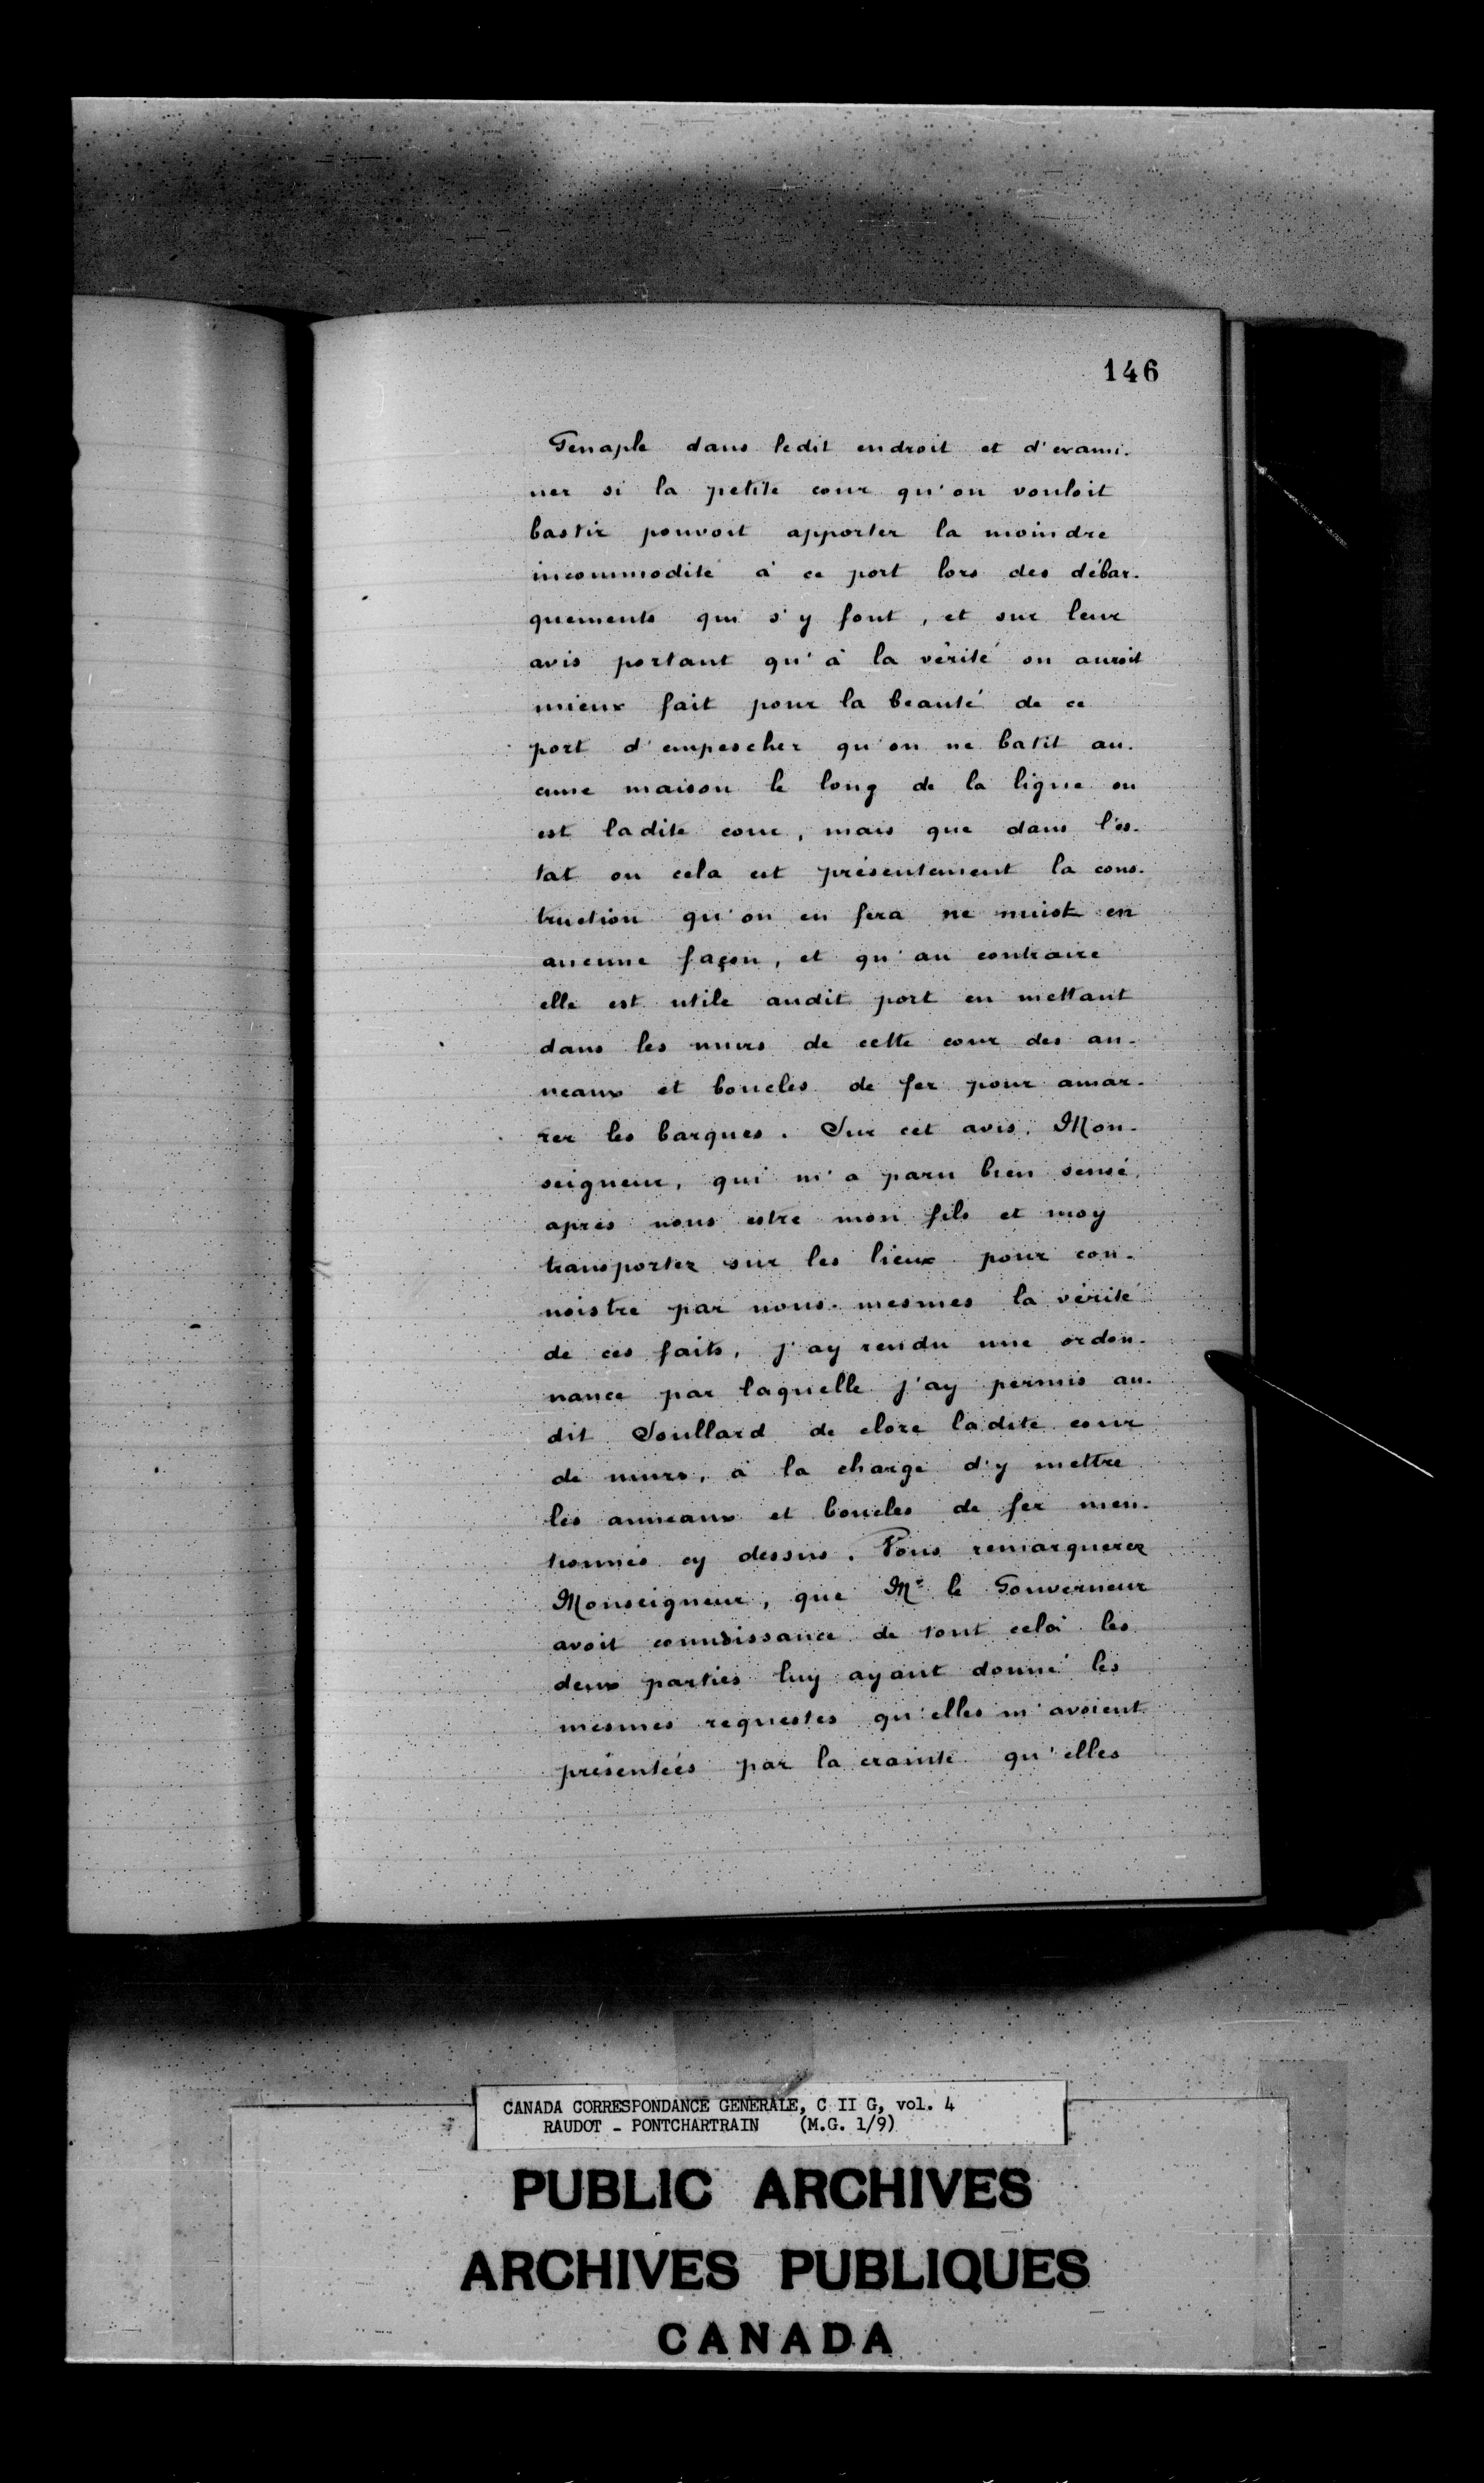 146
Genaple dans ledit endroit et d'exami-
ner si la petite cour qu'on vouloit
bastir pouvoit apporter la moindre
incommodité à ce port lors des débar-
quements qui s'y font, et sur leur
avis portant qu'à la vérité on auroit
mieux fait pour la beauté de ce
port d'empescher qu'on ne batit au-
cune maison le long de la ligne ou
est ladite cour, mais que dans l'es-
tat ou cela est présentement la cons-
truction qu'on en fera ne nuist en
aucune façon, et qu'au contraire
elle est utile audit port en mettant
dans les murs de cette cour des an-
neaux et boucles de fer pour amar-
rer les barques. Sur cet avis, Mon-
seigneur, qui m'a paru bien sensé,
après nous estre mon fils et moy
transporter sur les lieux pour con-
noistre par nous-mesmes la vérité
de ces faits, j'ay rendu une ordon-
nance par laquelle j'ay permis au-
dit Soullard de clore ladite cour
de murs, à la charge d'y mettre
les anneaux et boucles de fer men-
tionnés cy dessus. Vous remarquerez
Monseigneur, que Mr le Gouverneur
avoit connoissance de tout cela les
deux parties luy ayant donné les
mesmes requestes qu'elles m'avoient
présentées par la crainte qu'elles
CANADA CORRESPONDANCE GENERALE, C II G, vol. 4
RAUDOT - PONTCHARTRAIN (M.G. 1/9)
PUBLIC ARCHIVES
ARCHIVES PUBLIQUES
CANADA